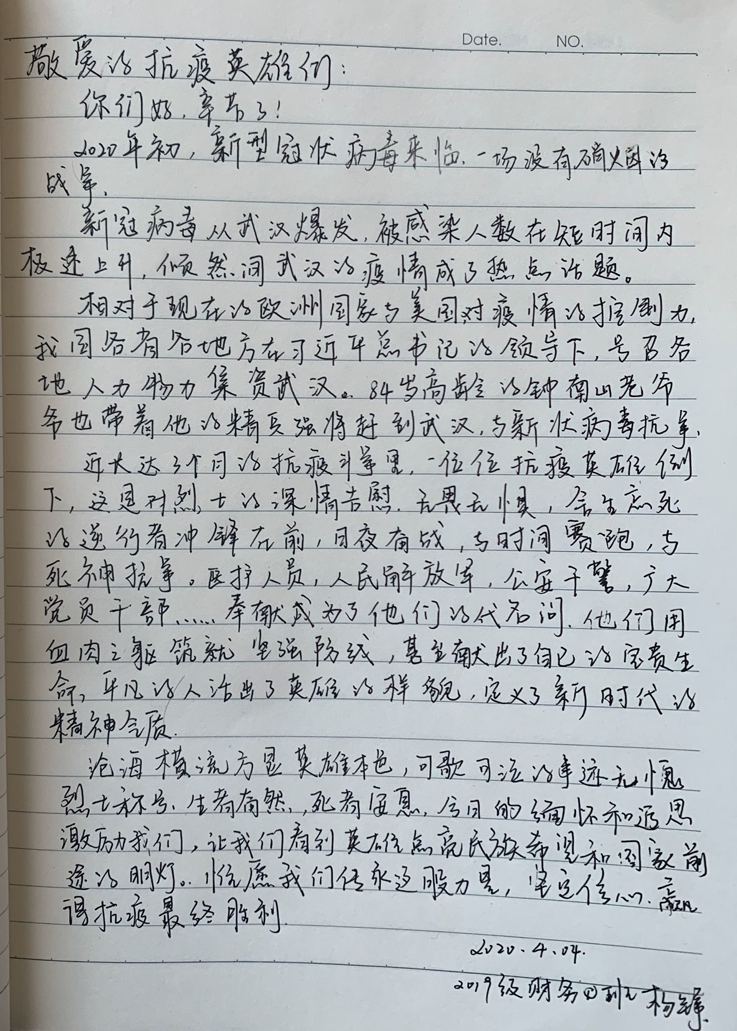 Date. NO.
敬爱的抗疫英雄们：
你们好，辛苦了！
2020年初，新型冠状病毒来临，一场没有硝烟的
战争.
新冠病毒从武汉爆发，被感染人数在短时间内
极速上升，倾然间武汉的疫情成了热点话题。
相对于现在的欧洲国家与美国对疫情的控制力,
我国各省各地方在习近平总书记的领导下，号召各
地人力物力集资武汉。84岁高龄的钟南山老爷
爷也带着他的精兵强将赶到武汉，与新状病毒抗争.
近长达3个月的抗疫斗争里，一位位抗疫英雄倒
下，这是对烈士的深情告慰. 无畏无惧，舍生忘死
的逆行者冲锋在前，日夜奋战，与时间赛跑，与
死神抗争。医护人员，人民解放军，公安干警，广大
党员干部……奉献成为了他们的代名词. 他们用
血肉之躯筑就坚强防线，甚至献出了自己的宝贵生
命，平凡的人活出了英雄的样貌，定义了新时代的
精神气质.
沧海横流方显英雄本色，可歌可泣的事迹无愧
烈士称号. 生者奋然，死者安息. 今日的缅怀和追思
激励我们，让我们看到英雄点亮民族希望和国家前
途的明灯。 我们传承这股力量，坚定信心. 赢
得抗疫最终胜利
2020.4.04.
2019级财务 班 杨